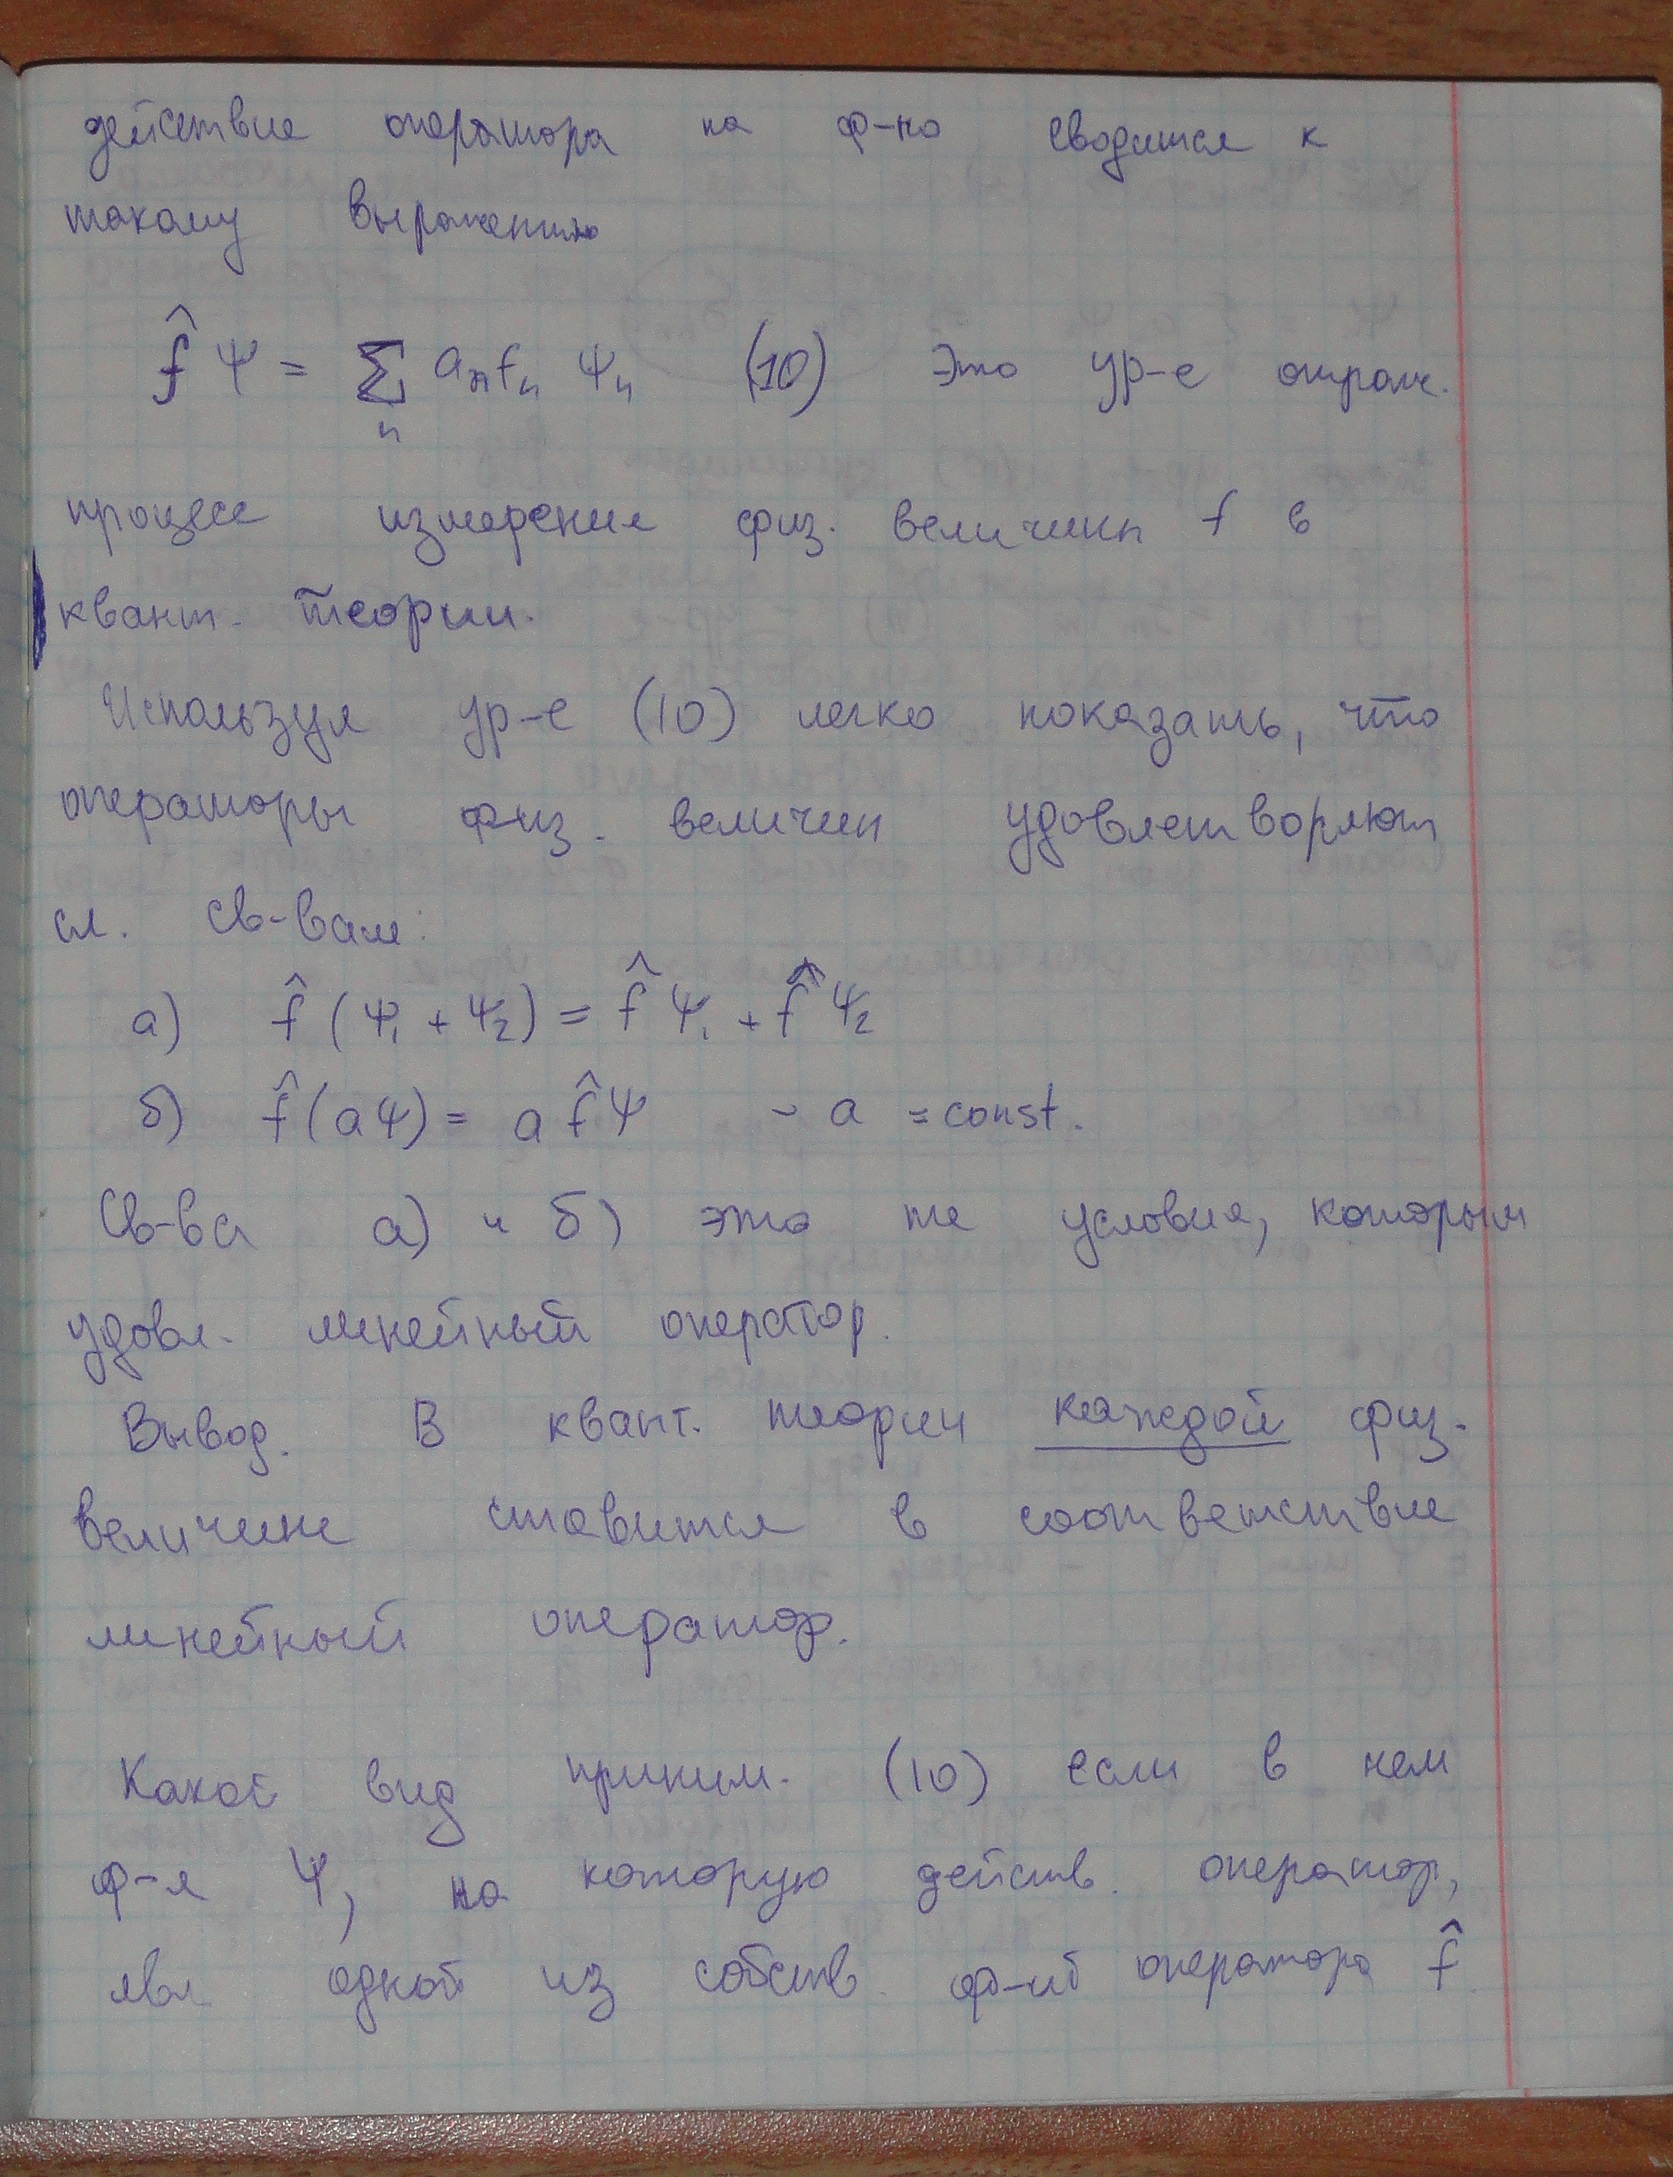 действие оператора на ф-ю сводится к
такому выражению
f̂ Ψ = Σ aₙfₙ Ψₙ (10) Это ур-е отраж.
n
процесс измерения физ. величины f в
квант. теории.
Используя ур-е (10) легко показать, что
операторы физ. величин удовлетворяют
сл. св-вам:
а) f̂ (Ψ₁ + Ψ₂) = f̂ Ψ₁ + f̂ Ψ₂
б) f̂ (aΨ) = a f̂ Ψ - a = const.
Св-ва а) и б) это те условия, которым
удовл. линейный оператор.
Вывод. В квант. теории каждой физ.
величине ставится в соответствие
линейный оператор.
Какой вид приним. (10) если в нем
ф-я Ψ, на которую действ. оператор,
явл одной из собств. ф-ий оператора f̂